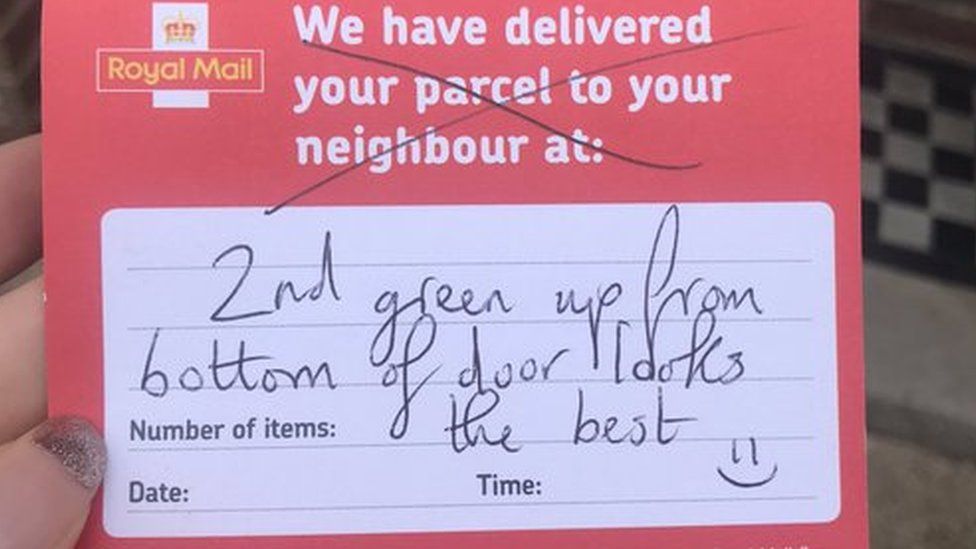 Royal Mail
We have delivered
your parcel to your
neighbour at:
2nd green up from
bottom of door looks
the best
Number of items:
Date:
Time: